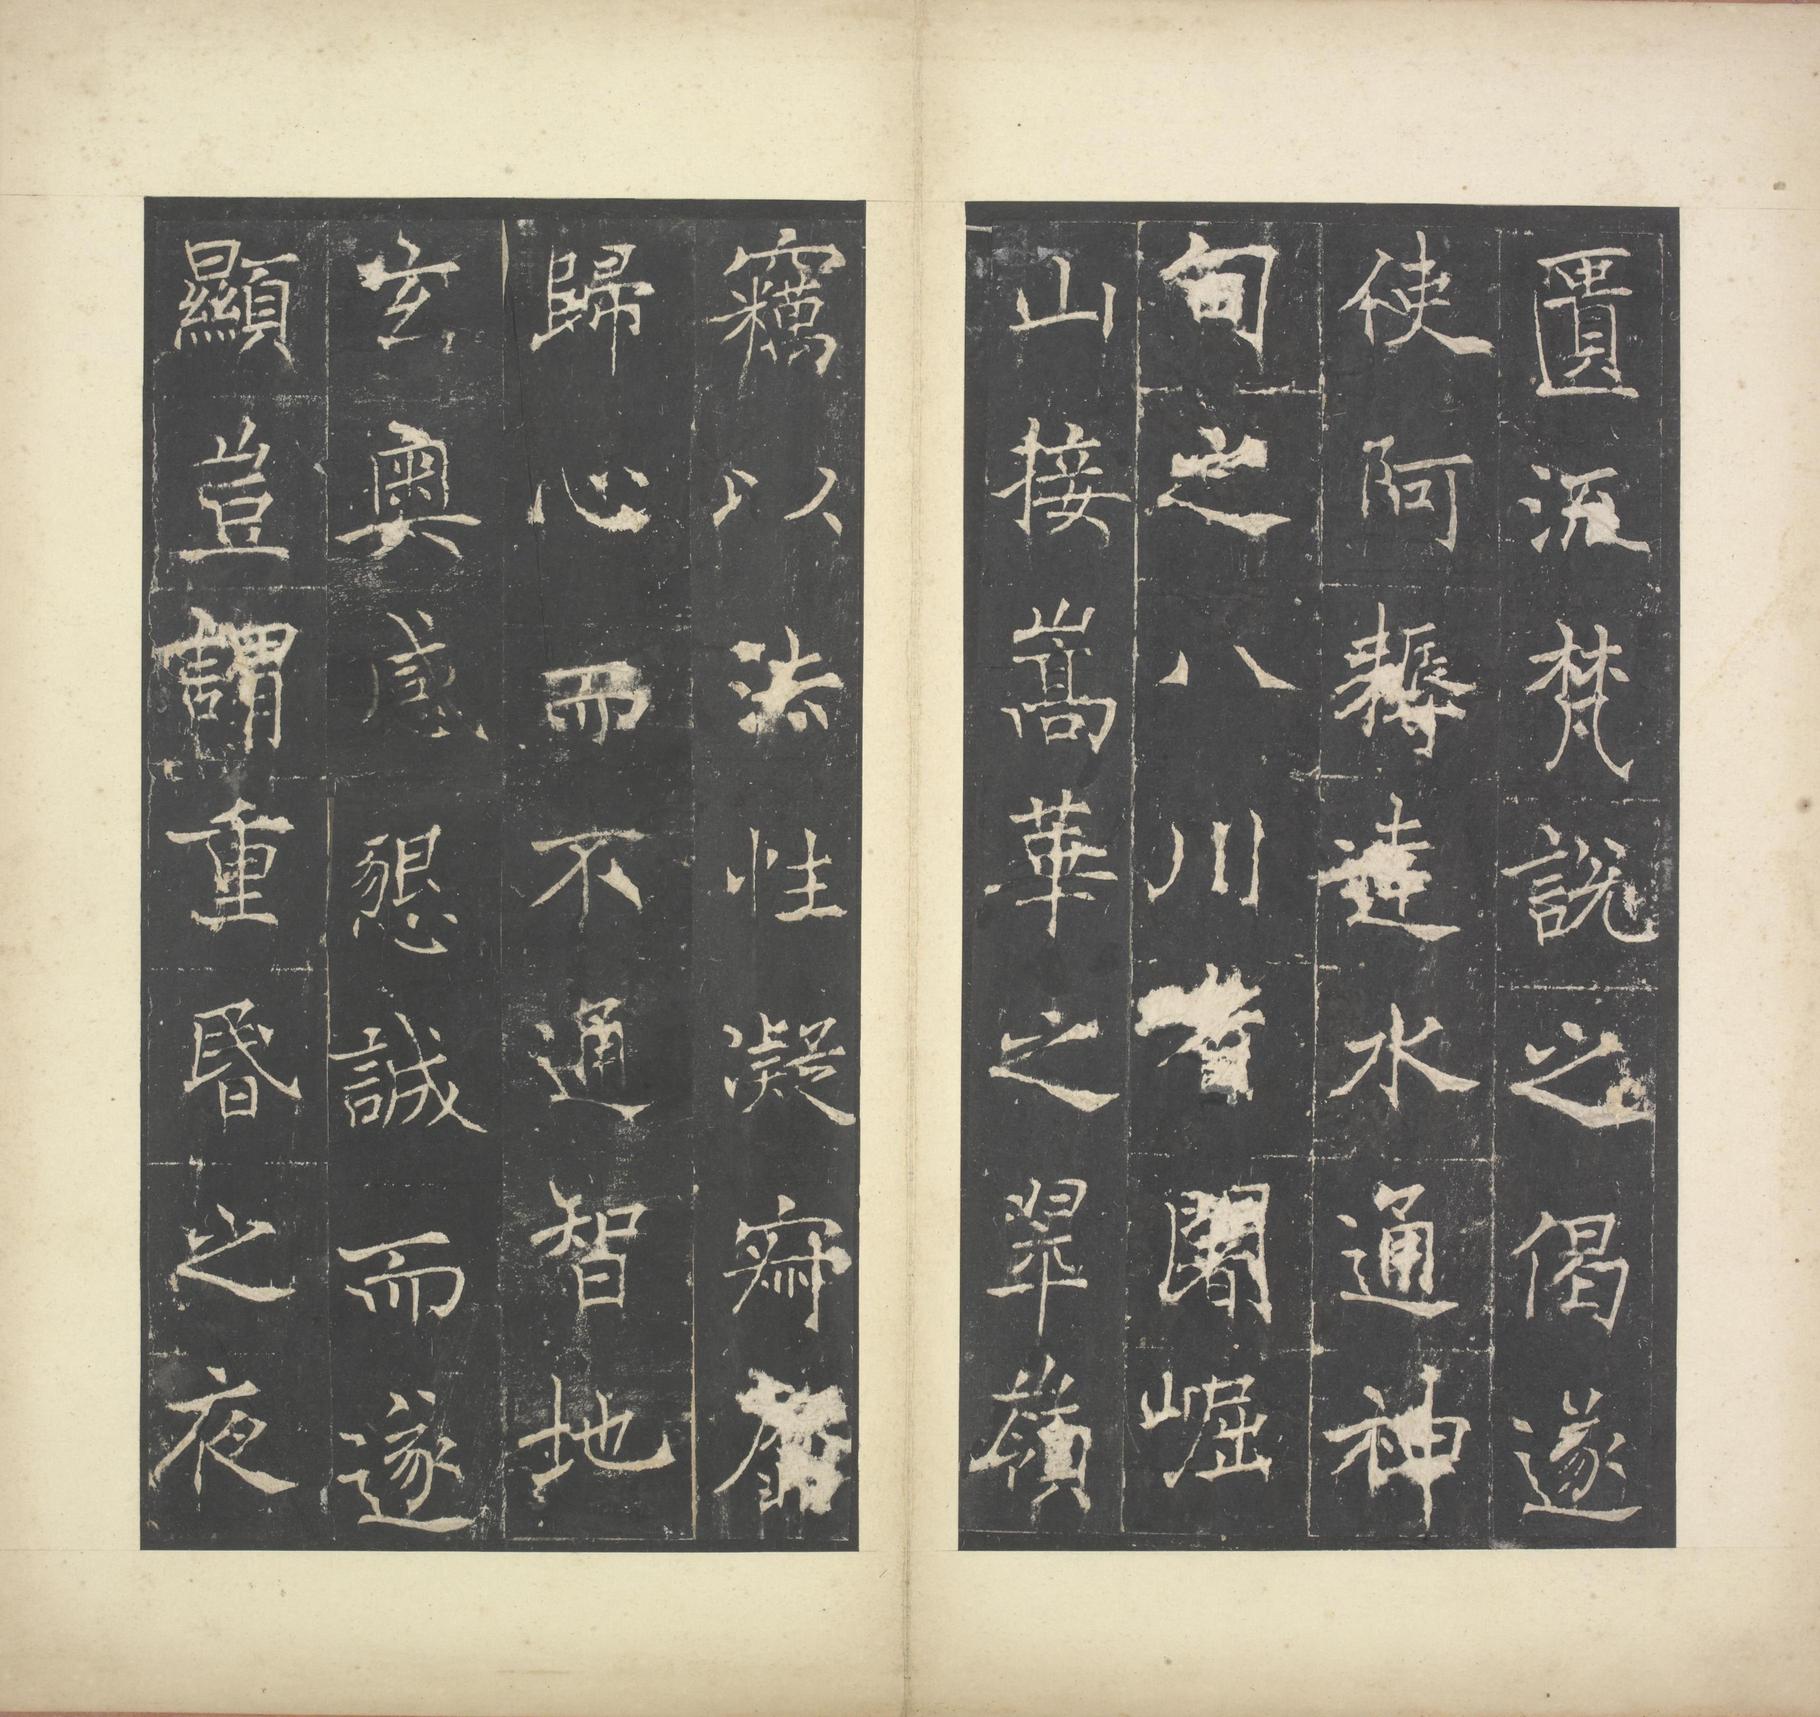 匱流梵說之偈遂
使阿耨達水通神
甸之八川耆闍崛
山接嵩華之翠嶺
竊以法性凝寂靡
歸心而不通智地
玄奧感懇誠而遂
顯豈謂重昏之夜